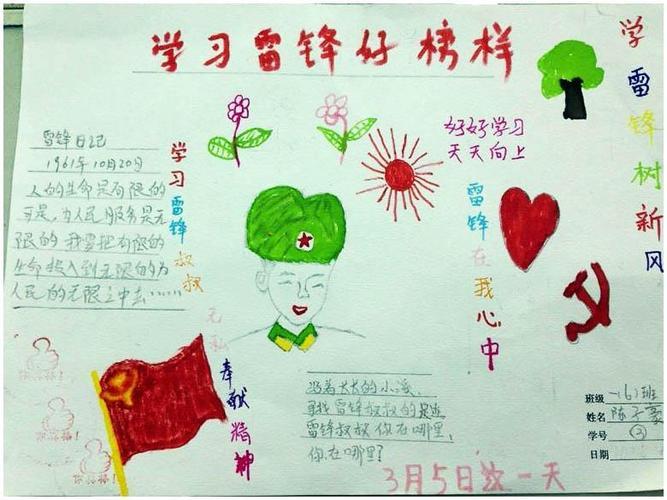 学习雷锋好榜样
学雷锋树新风
好好学习
天天向上
雷锋日记
1961年10月20日
人的生命是有限的
可是，为人民服务是无
限的我要把有限的
生命投入到无限的为
人民的无限之中去……
学习雷锋叔叔
无私
奉献精神
雷锋在我心中
沿着长长的小溪
寻找雷锋叔叔的足迹
雷锋叔叔你在哪里，
你在哪里？
3月5日 一天
你真棒！
你真棒！
你真棒！
班级 一(6)班
姓名 陈子
学号 ③
日期